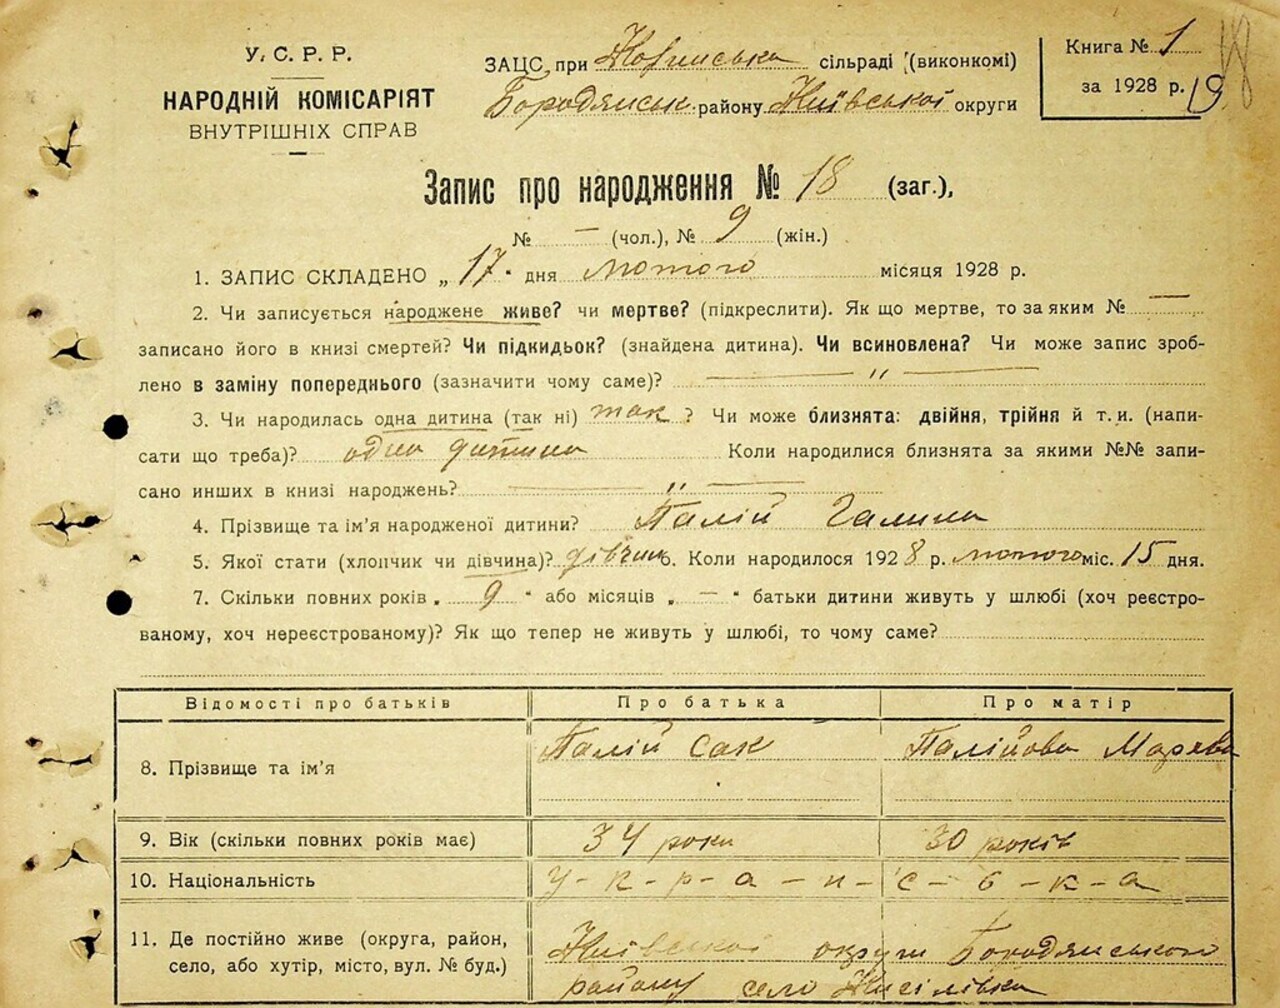 У. С. Р. Р.
НАРОДНІЙ КОМІСАРІЯТ
ВНУТРІШНІХ СПРАВ
ЗАЦС при сільраді (виконкомі)
Бородянськ. району Київської округи
Книга № 1
за 1928 р.
Запис про народження № 18 (заг.),
№ — (чол.), № 9 (жін.)
1. ЗАПИС СКЛАДЕНО „ 17 " дня лютого місяця 1928 р.
2. Чи записується народжене живе? чи мертве? (підкреслити). Як що мертве, то за яким № —
записано його в книзі смертей? Чи підкидьок? (знайдена дитина). Чи всиновлена? Чи може запис зроб-
лено в заміну попереднього (зазначити чому саме)? — „ —
3. Чи народилась одна дитина (так ні) так ? Чи може близнята: двійня, трійня й т. и. (напи-
сати що треба)? одна дитина Коли народилися близнята за якими №№ запи-
сано инших в книзі народжень? — „ —
4. Прізвище та ім'я народженої дитини? Палій Галина
5. Якої стати (хлопчик чи дівчина)? дівчин 6. Коли народилося 1928 р. лютого міс. 15 дня.
7. Скільки повних років „ 9 " або місяців „ — " батьки дитини живуть у шлюбі (хоч реєстро-
ваному, хоч нереєстрованому)? Як що тепер не живуть у шлюбі, то чому саме?
Відомості про батьків Про батька Про матір
8. Прізвище та ім'я Палій Сак Палійова
9. Вік (скільки повних років має) 34 роки 30 років
10. Національність У - к - р - а - и - с - ь - к - а
11. Де постійно живе (округа, район,
село, або хутір, місто, вул. № буд.)
Київської округи Бородянського
району село